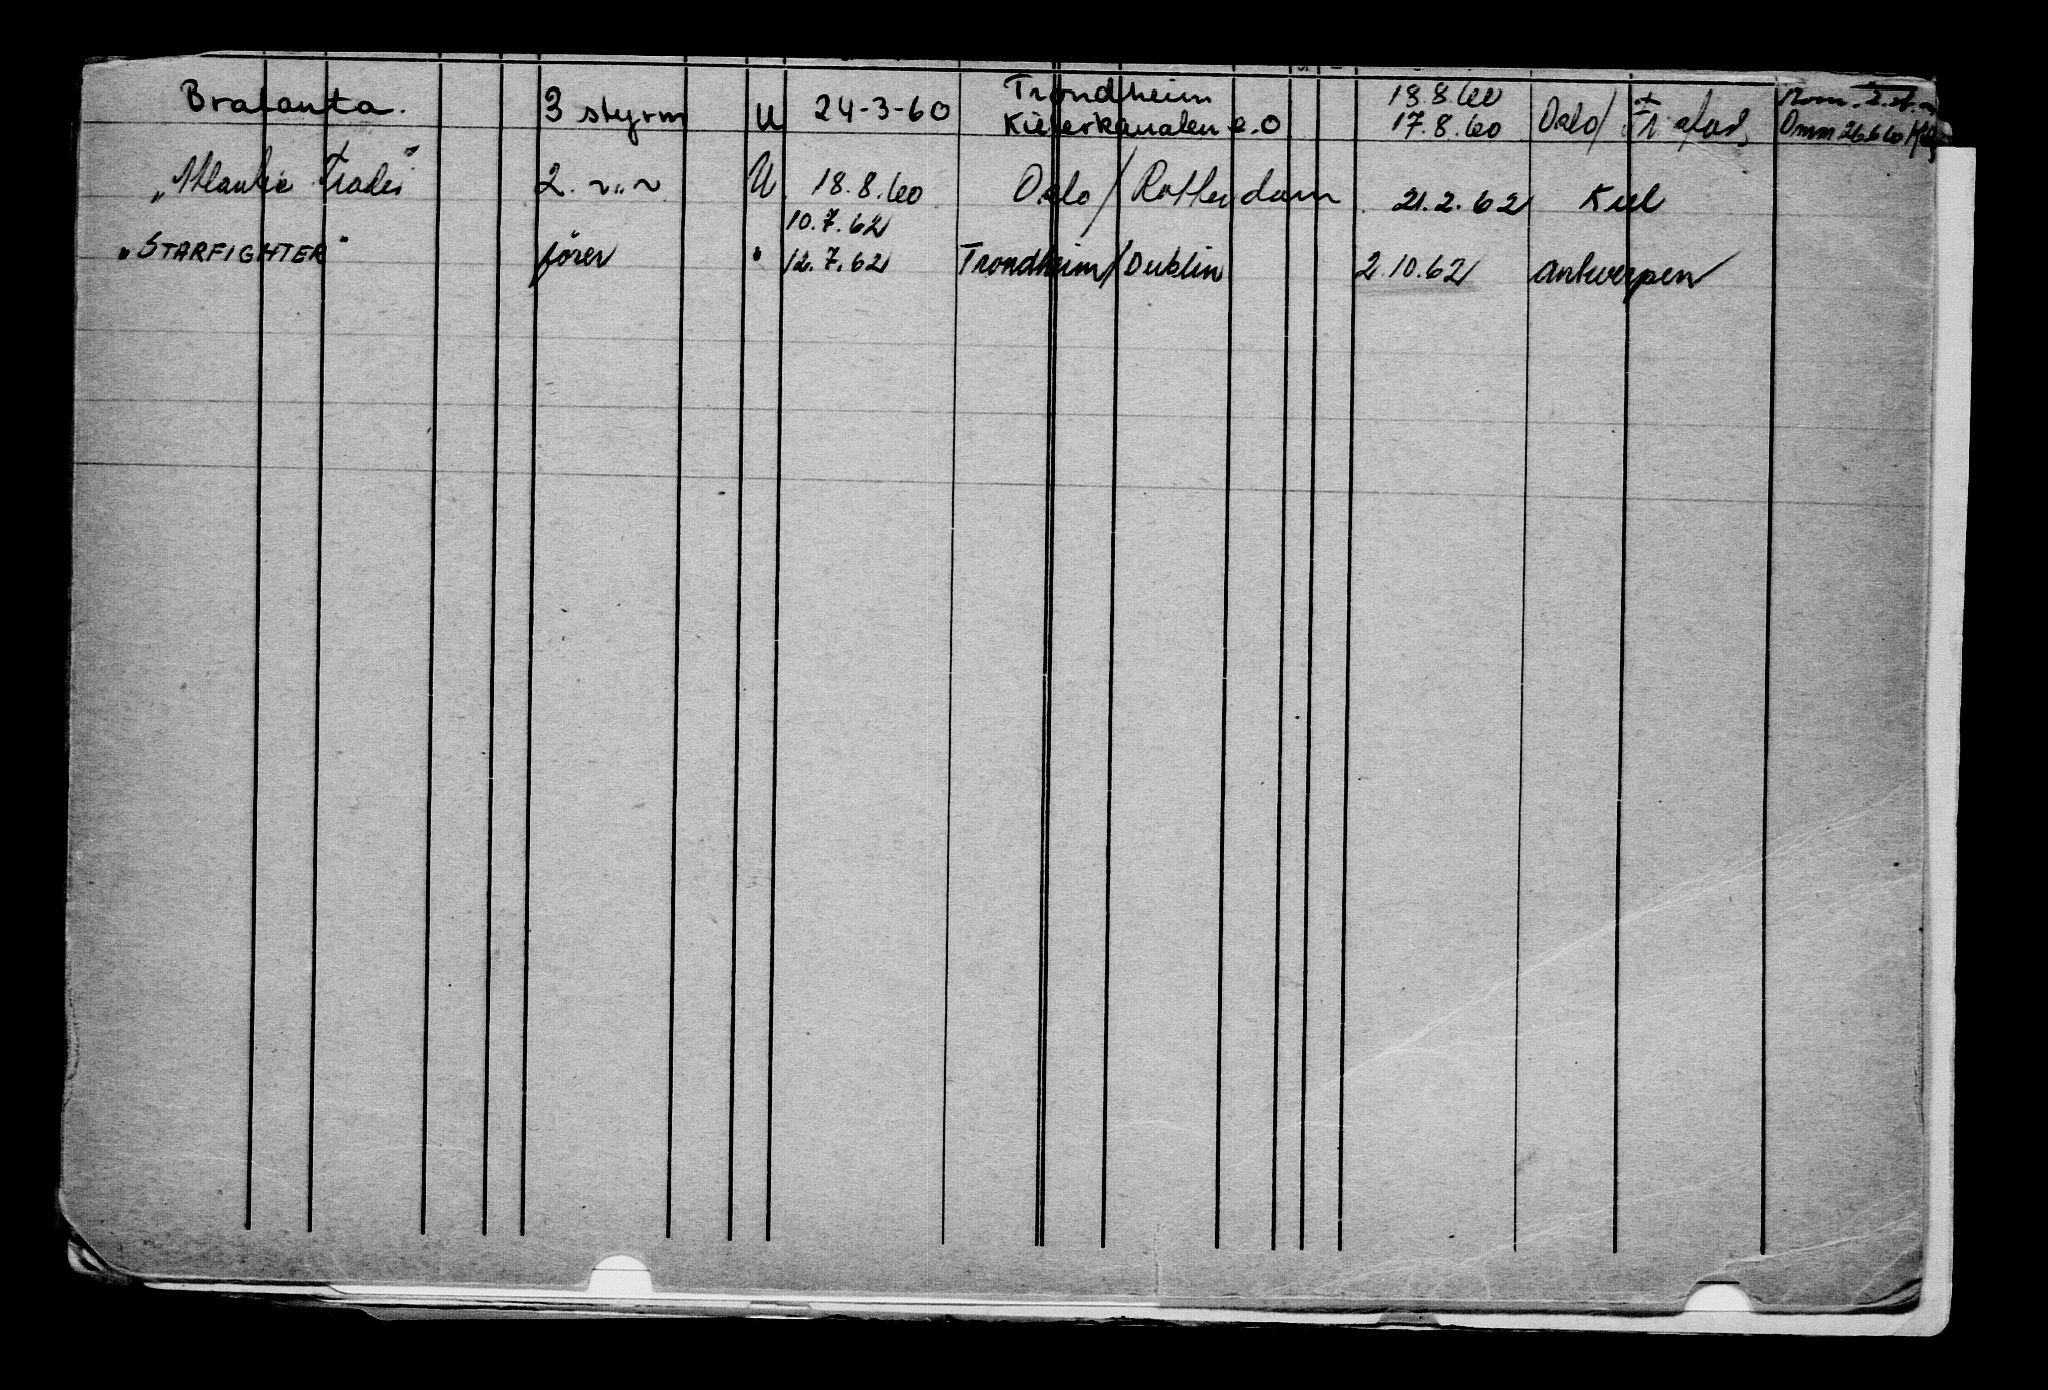 Brafanta. 3 styrm U 24-3-60 Trondheim 18.8.60
Kielerkanalen e.O 17.8.60 Oslo/ Omm. 26.6.60
"Atlantic Trader" 2. ~"~ U 18.8.60 Oslo/Rotterdam 21.2.62 Kiel
10.7.62
"STARFIGHTER" fører " 12.7.62 Trondheim/Dublin 2.10.62 Antwerpen